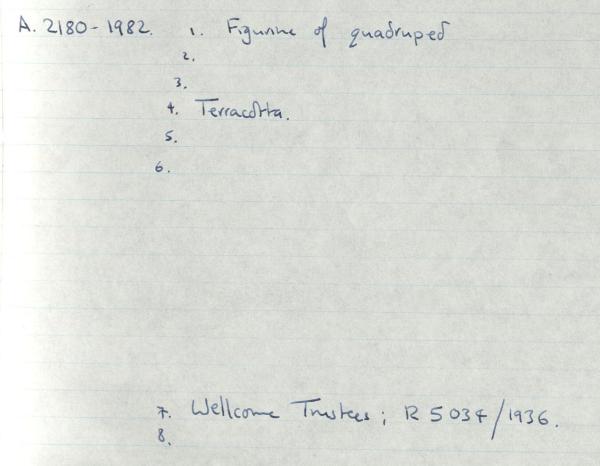 A. 2180-1982. 1. Figurine of quadruped
2.
3.
4. Terracotta.
5.
6.
7. Wellcome Trustees; R 5034/1936.
8.